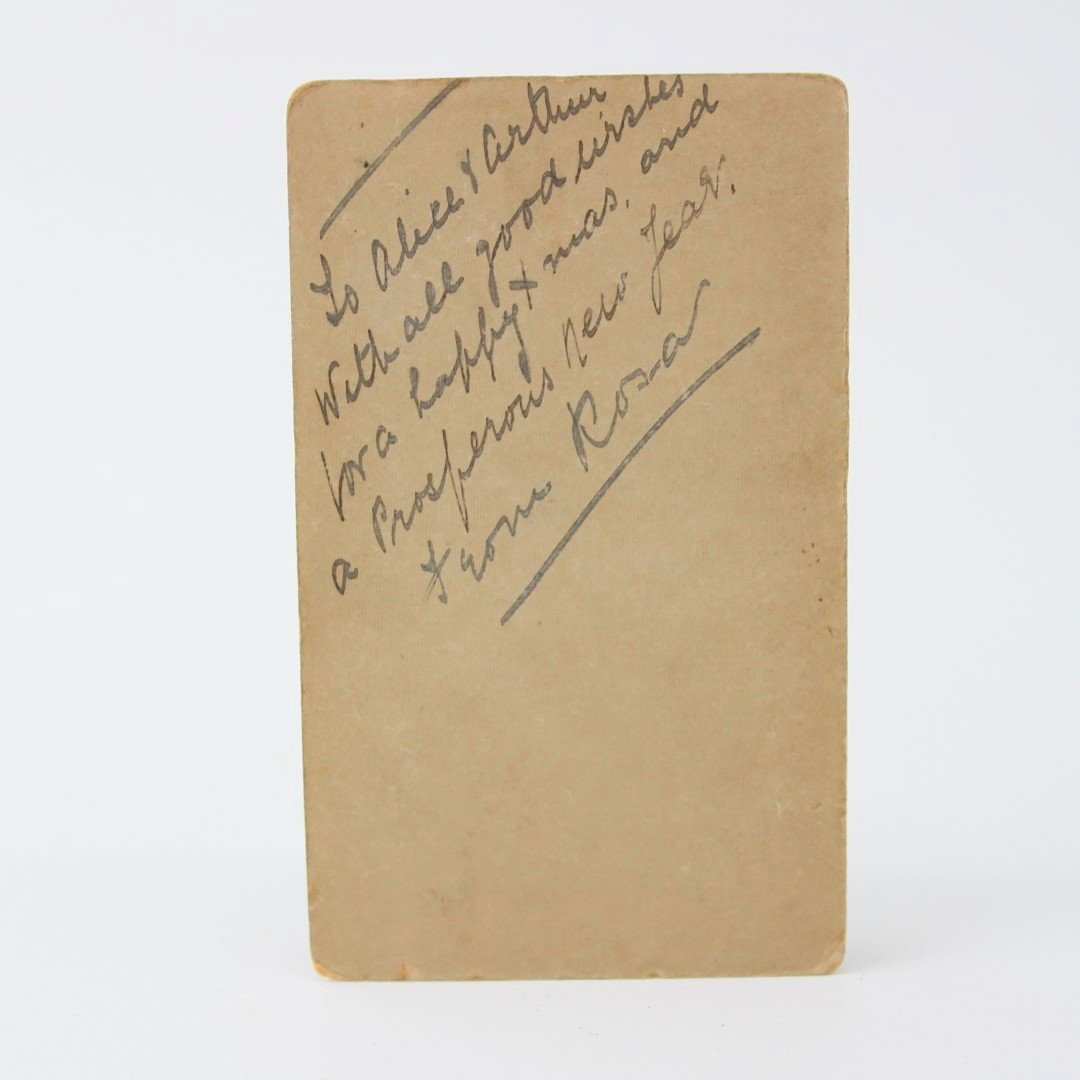 To Alice & Arthur
With all good wishes
for a happy Xmas. and
a Prosperous New Year.
From Rosa